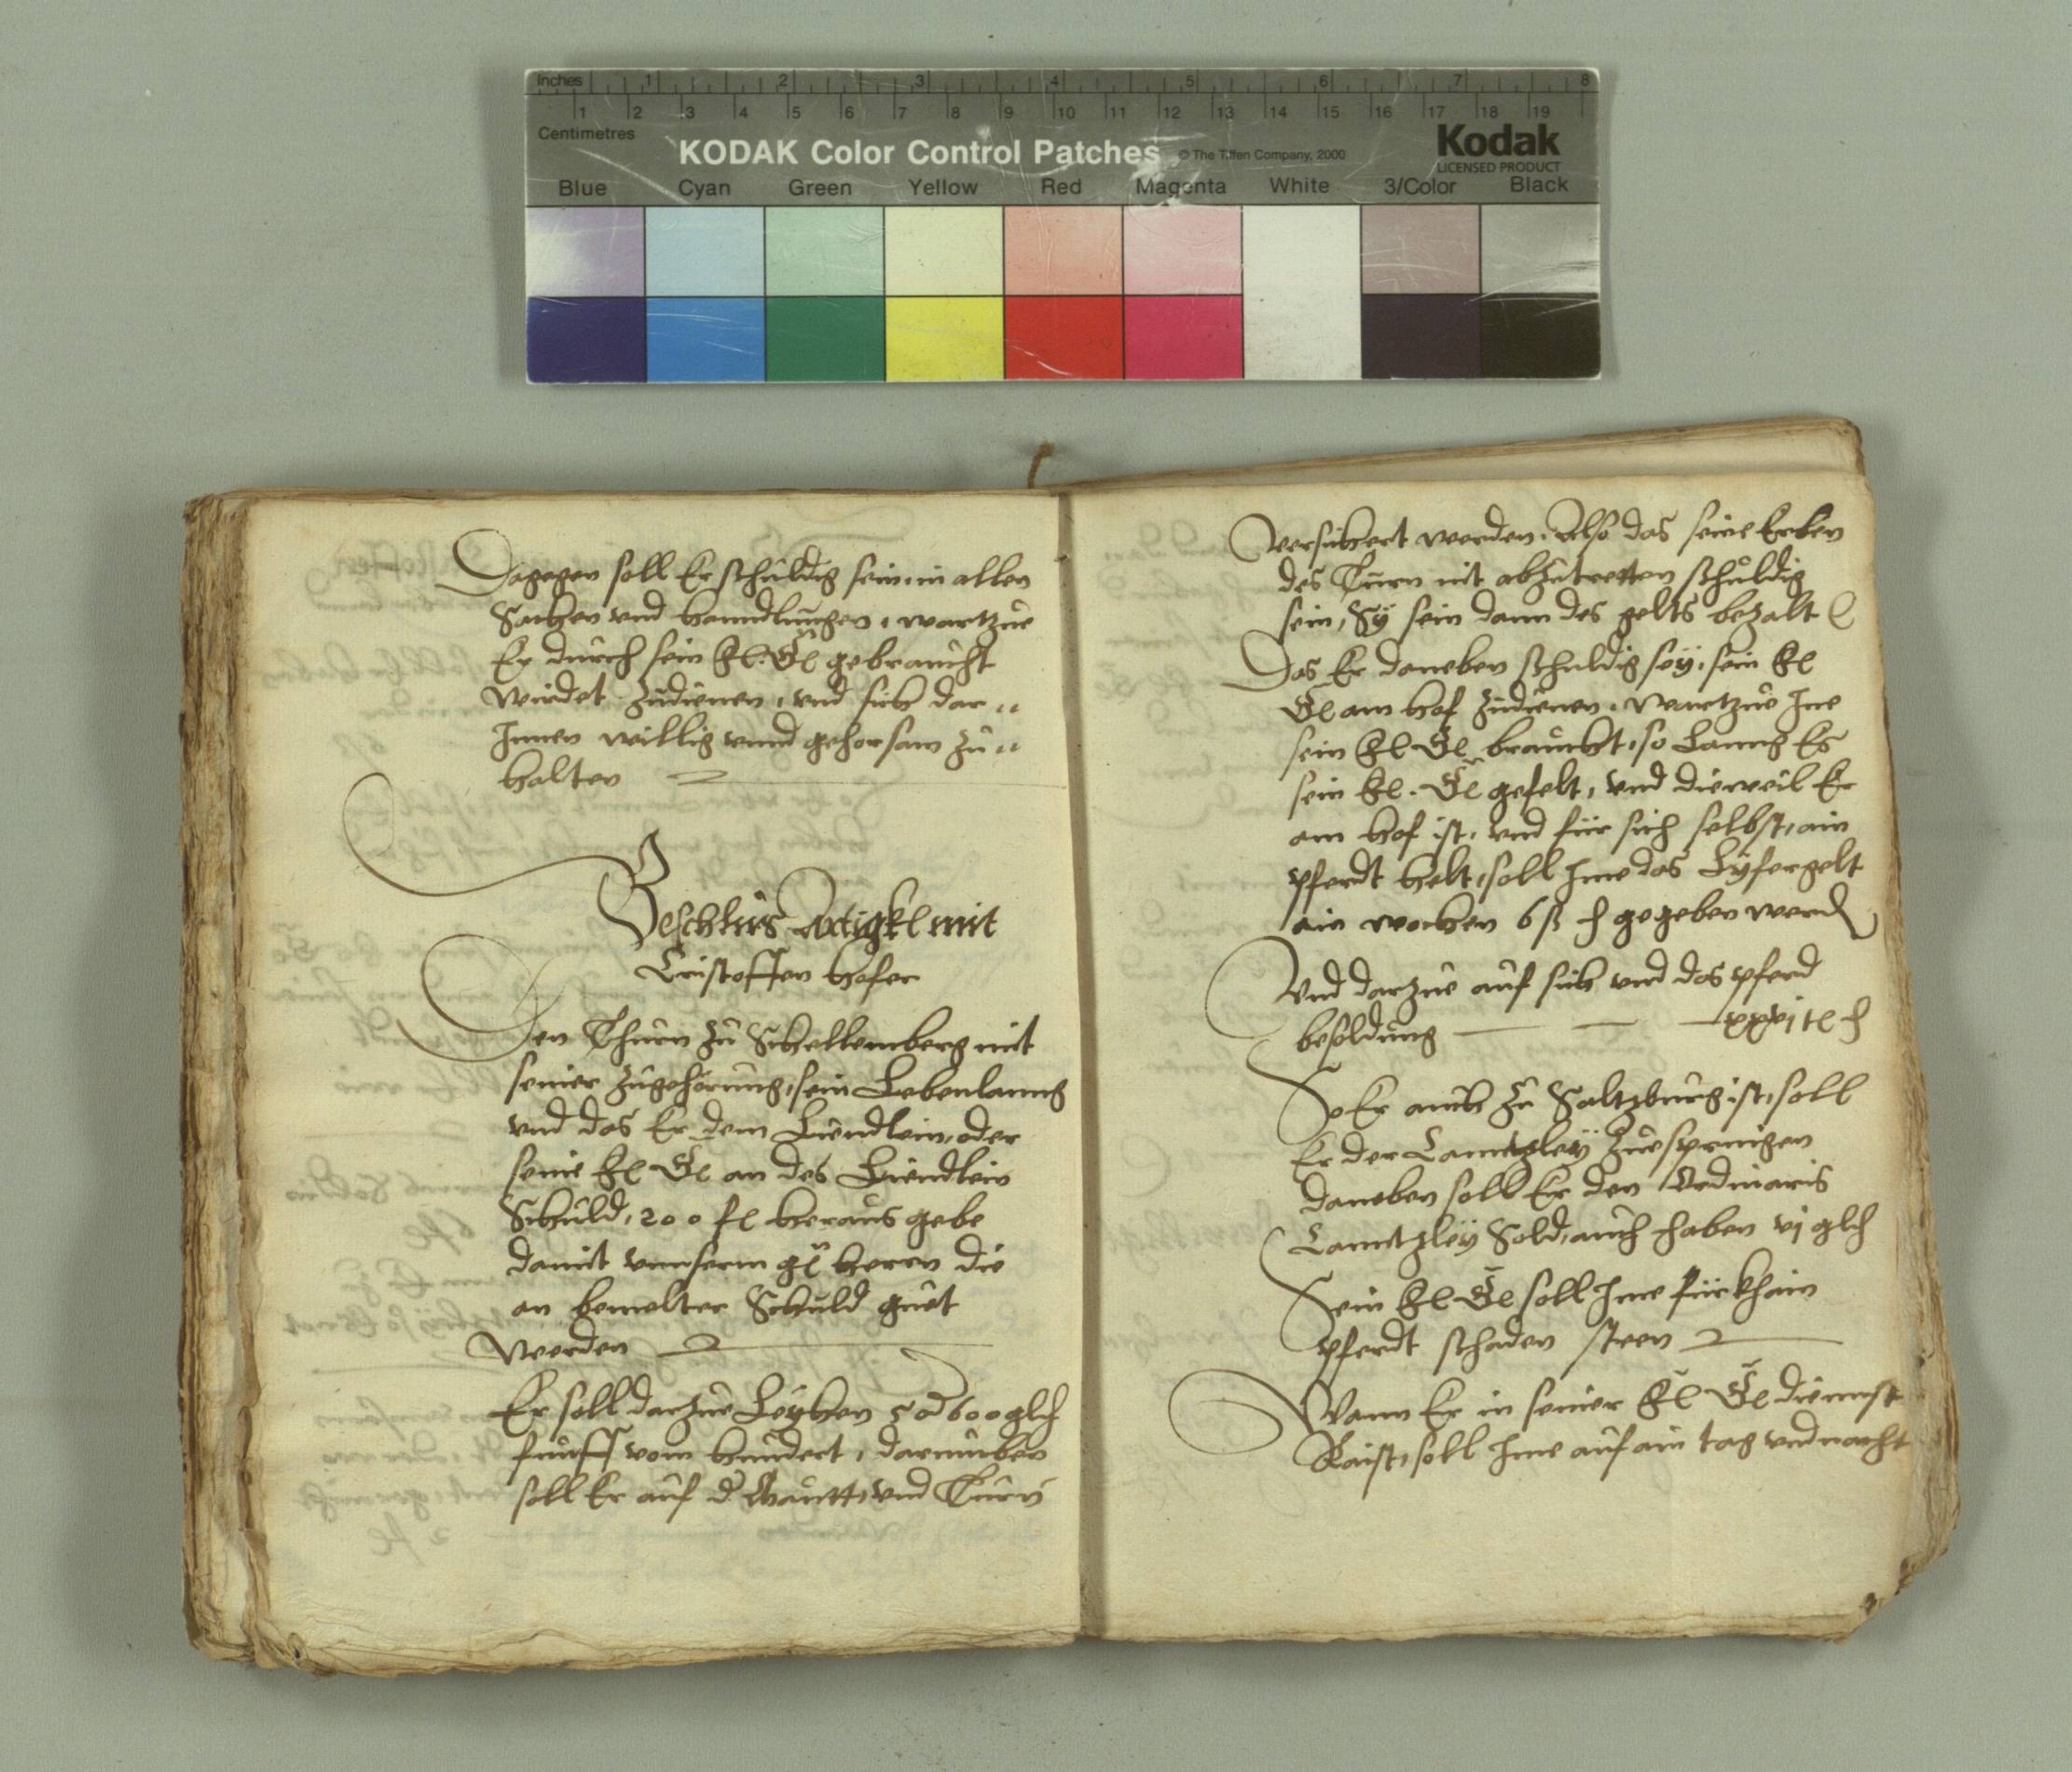 Inches 1 2 3 4 5 6 7 8
1 2 3 4 5 6 7 8 9 10 11 12 13 14 15 16 17 18 19
Centimetres
KODAK Color Control Patches © The Tiffen Company, 2000
Kodak
LICENSED PRODUCT
Blue Cyan Green Yellow Red Magenta White 3/Color Black
Dagegen soll Er schuldig sein, in allen
Sachen vnd hanndlungen, wartzue
Er durch sein Fl. Gl gebraucht
wirdet zudienen, vnd sich dar„
Innen willig vnnd gehorsam zu„
halten
Beschlus Artigkl mit
Cristoffen hofer
Den Thurn zu Schellemberg mit
seiner zugehörung, sein Lebenlanng
vnd das Er dem Liendlein, oder
seine Fl Gl an des Liendlein
Schuld, 200 fl heraus gebe
damit vnnserm gl herrn die
an bemelter Schuld guet
werden
Er soll darzue Leyhen 600 glh
funff vom hundert, darumben
soll Er auf d Mautt, vnd Turn
versichert werden. Also das seine Erben
des Turn nit abzutretten schuldig
sein, Sÿ sein dann des gelts bezalt
Das Er daneben schuldig seÿ, sein Fl
Gl am hof zudienen, wartzue Ine
sein Fl Gl braucht, so Lanng Es
sein Fl. Gl gefelt, vnd dieweil Er
am hof ist, vnd für sich selbst, ain
pferdt helt, soll Ime das Lyfergelt
ain wochen 6 ß gegeben werd
Vnd darzue auf sich vnd das pferd
besoldung xxvj
So Er auch zu Saltzburg ist, soll
Er der Canntzleÿ zuespringen
daneben soll Er den Ordinaris
Canntzleÿ Sold, auch haben vj glh
Sein Fl Gl soll Ime für khain
pferdt schaden steen
Wann Er in seiner Fl Gl diennst
Raist, soll Ime auf ain tag vnd nacht